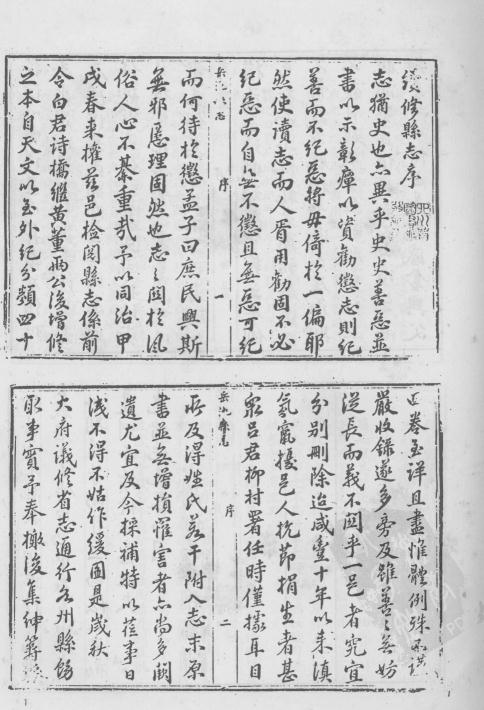 續修縣志序
志猶史也亦異乎史史善惡並
書以示彰癉以資勸懲志則紀
善而不紀惡將毋倚於一偏耶
然使讀志而人胥用勸固不必
紀惡而自無不懲且無惡可紀
岳池縣志 序 一
而何待於懲孟子曰庶民興斯
無邪慝理固然也志之關於風
俗人心不綦重哉予以同治甲
戌春來權茲邑檢閱縣志係前
令白君詩橋繼黃董兩公後增修
之本自天文以至外紀分類四十
四卷至詳且盡惟體例殊不謹
嚴收錄遂多旁及雖善善無妨
從長而義不關乎一邑者究宜
分別刪除迨咸豐十年以來滇
氛竄擾邑人抗節捐生者甚
眾呂君柳村署任時僅據耳目
岳池縣志 序 二
所及得姓氏若干附入志末原
書並無增損罹害者亦尚多闕
遺尤宜及今採補特以蒞事日
淺不得不姑作緩圖是歲秋
大府議修省志通行各州縣飭
取事實予奉檄後集紳籌